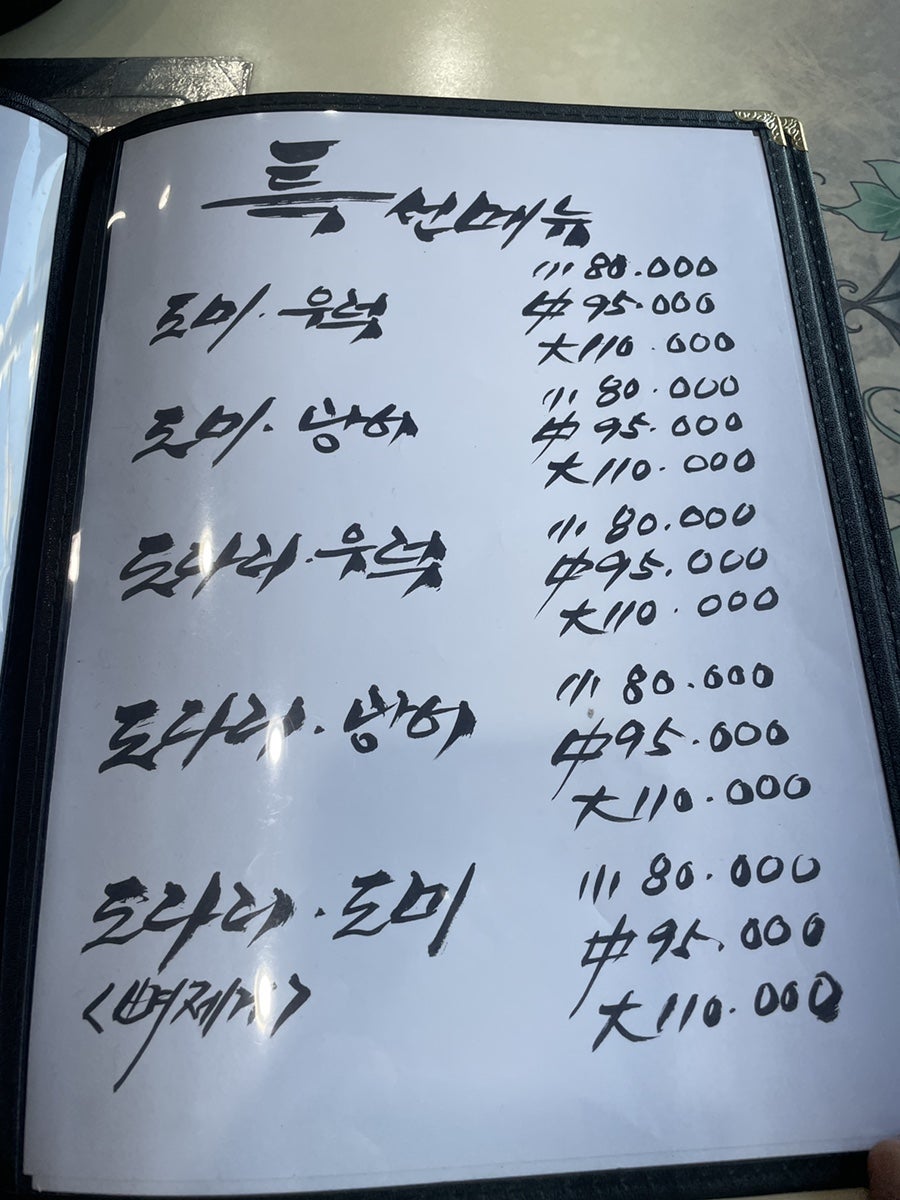 특선메뉴
小 80.000
도미·우럭 中 95.000
大 110.000
小 80.000
도미·방어 中 95.000
大 110.000
小 80.000
도다리·우럭 中 95.000
大 110.000
小 80.000
도다리·방어 中 95.000
大 110.000
小 80.000
도다리·도미 中 95.000
<뼈제거> 大 110.000